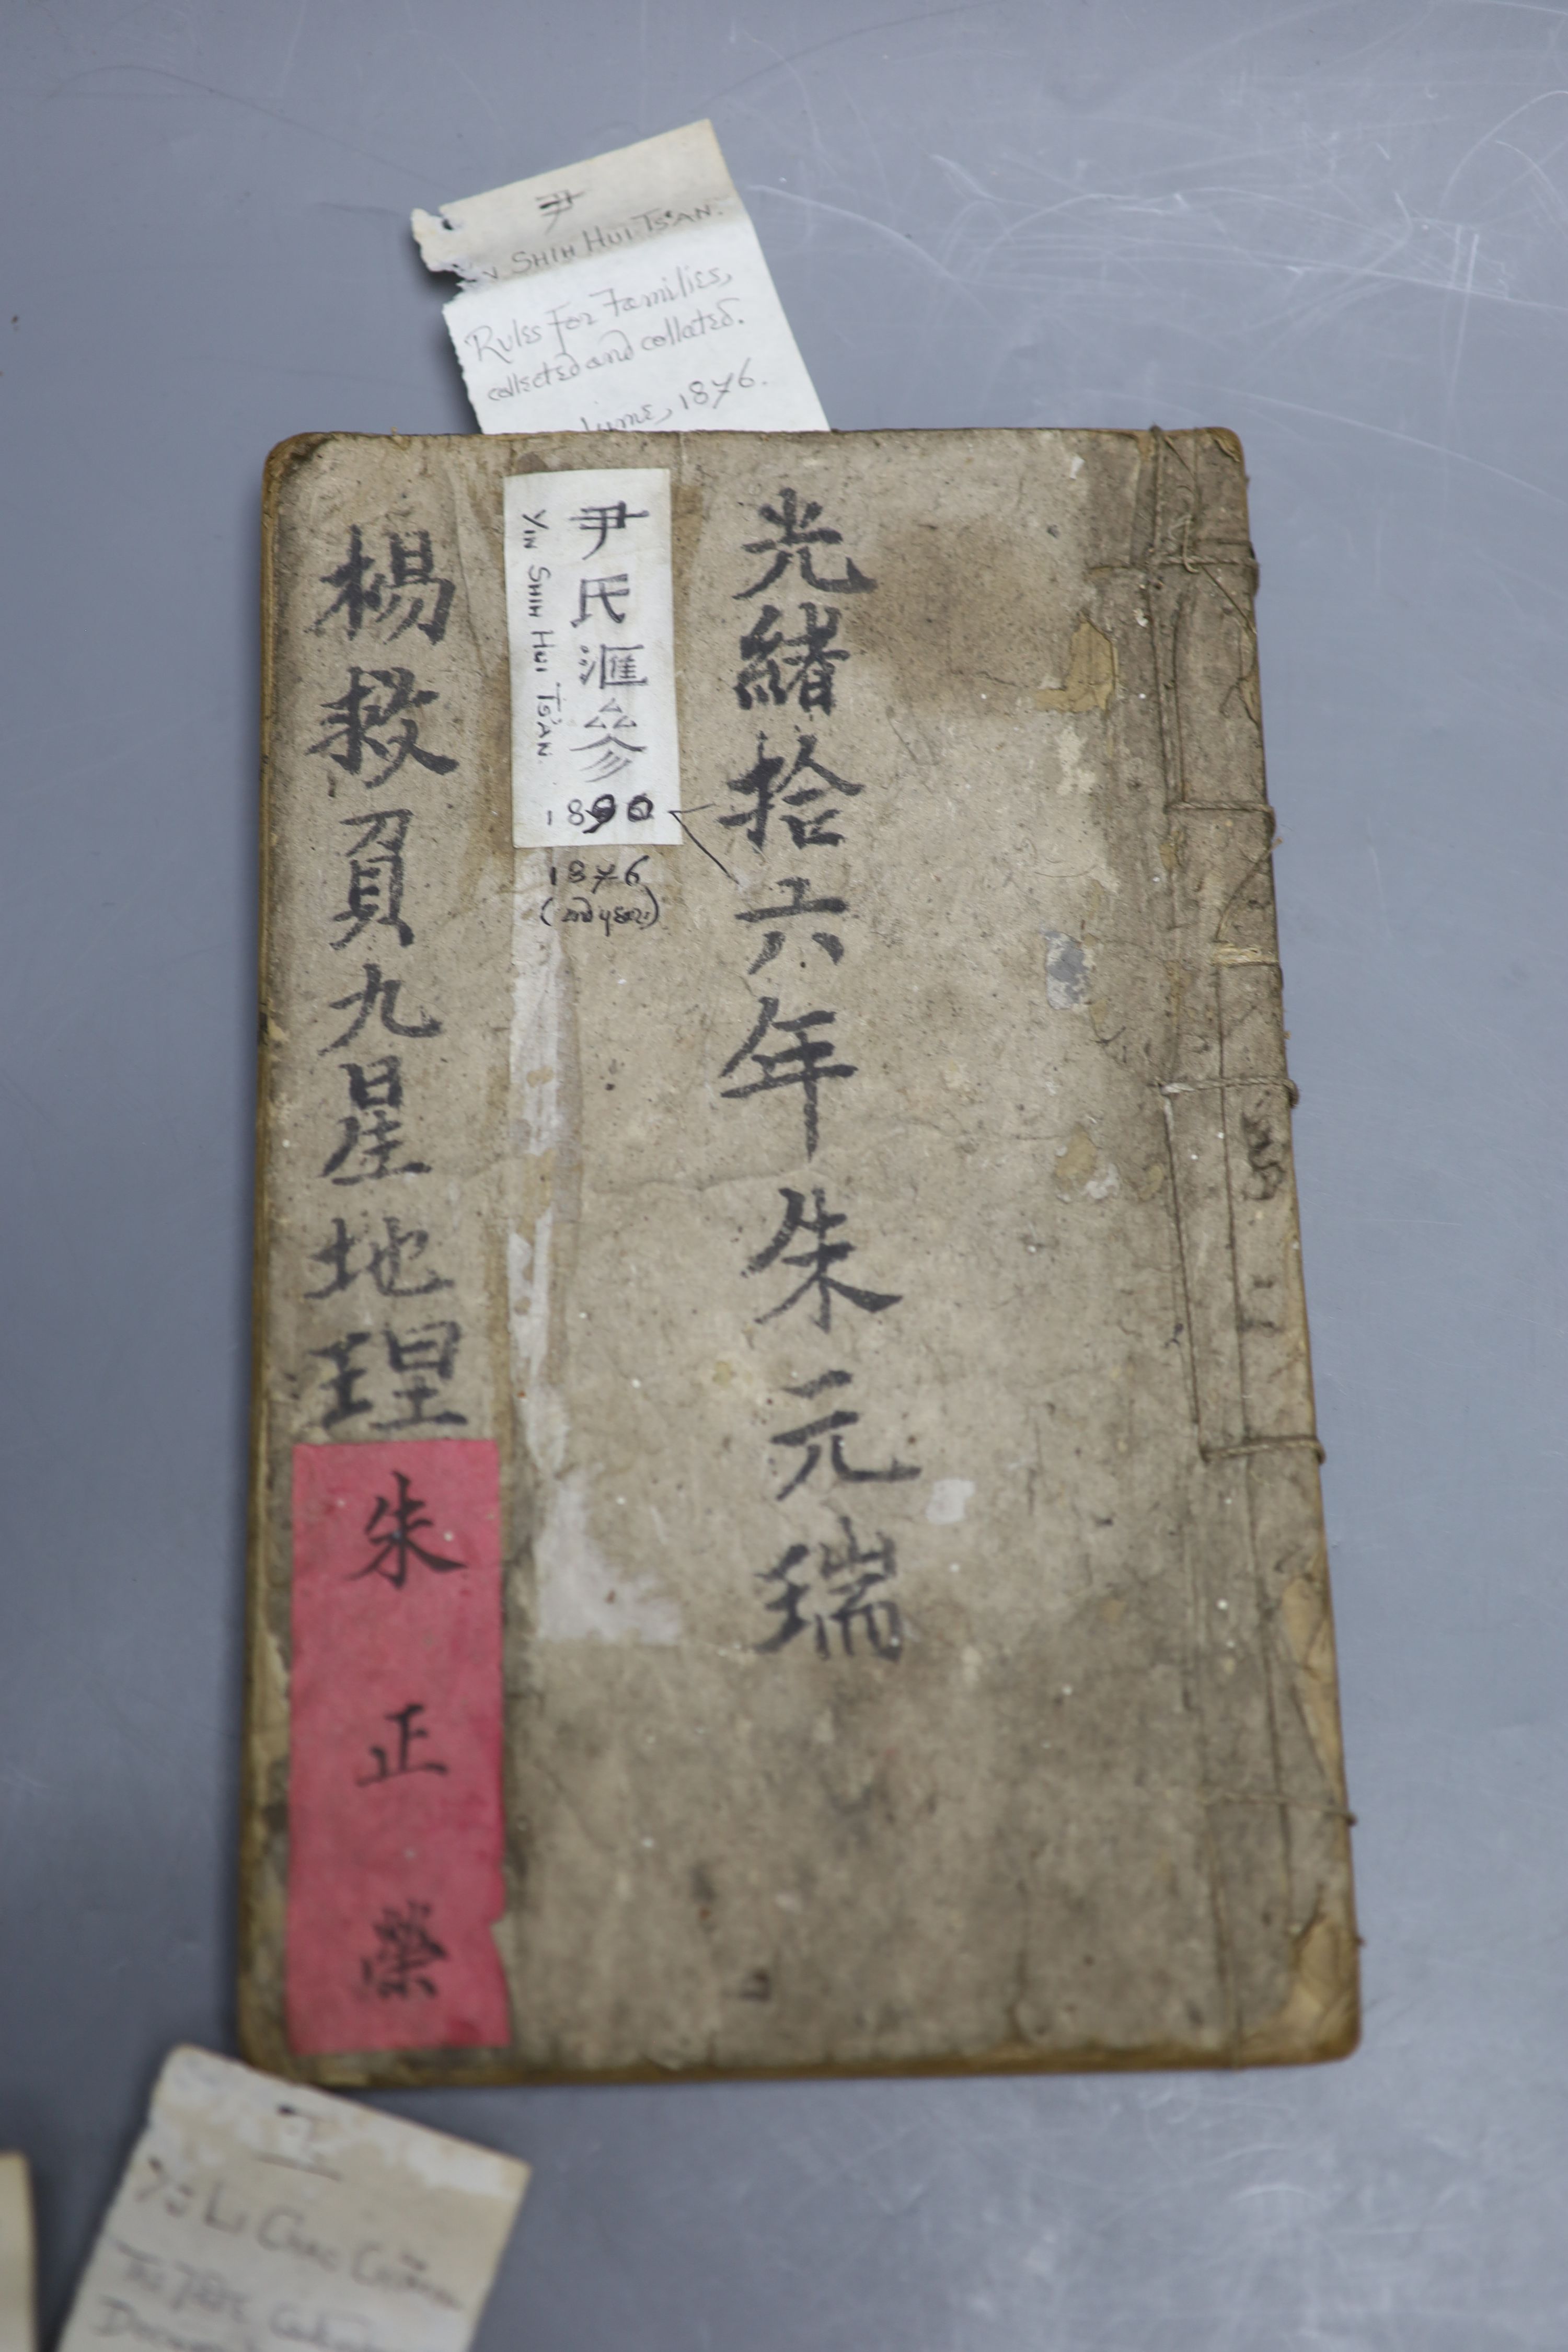 尹
SHIH HUI TS'AN.
Rules For Families,
collected and collated.
1876.
光緒拾六年朱元瑞
尹氏滙參
YIN SHIH HUI TS'AN
1890
1876
楊救貧九星地理
朱正榮
LI CHAO